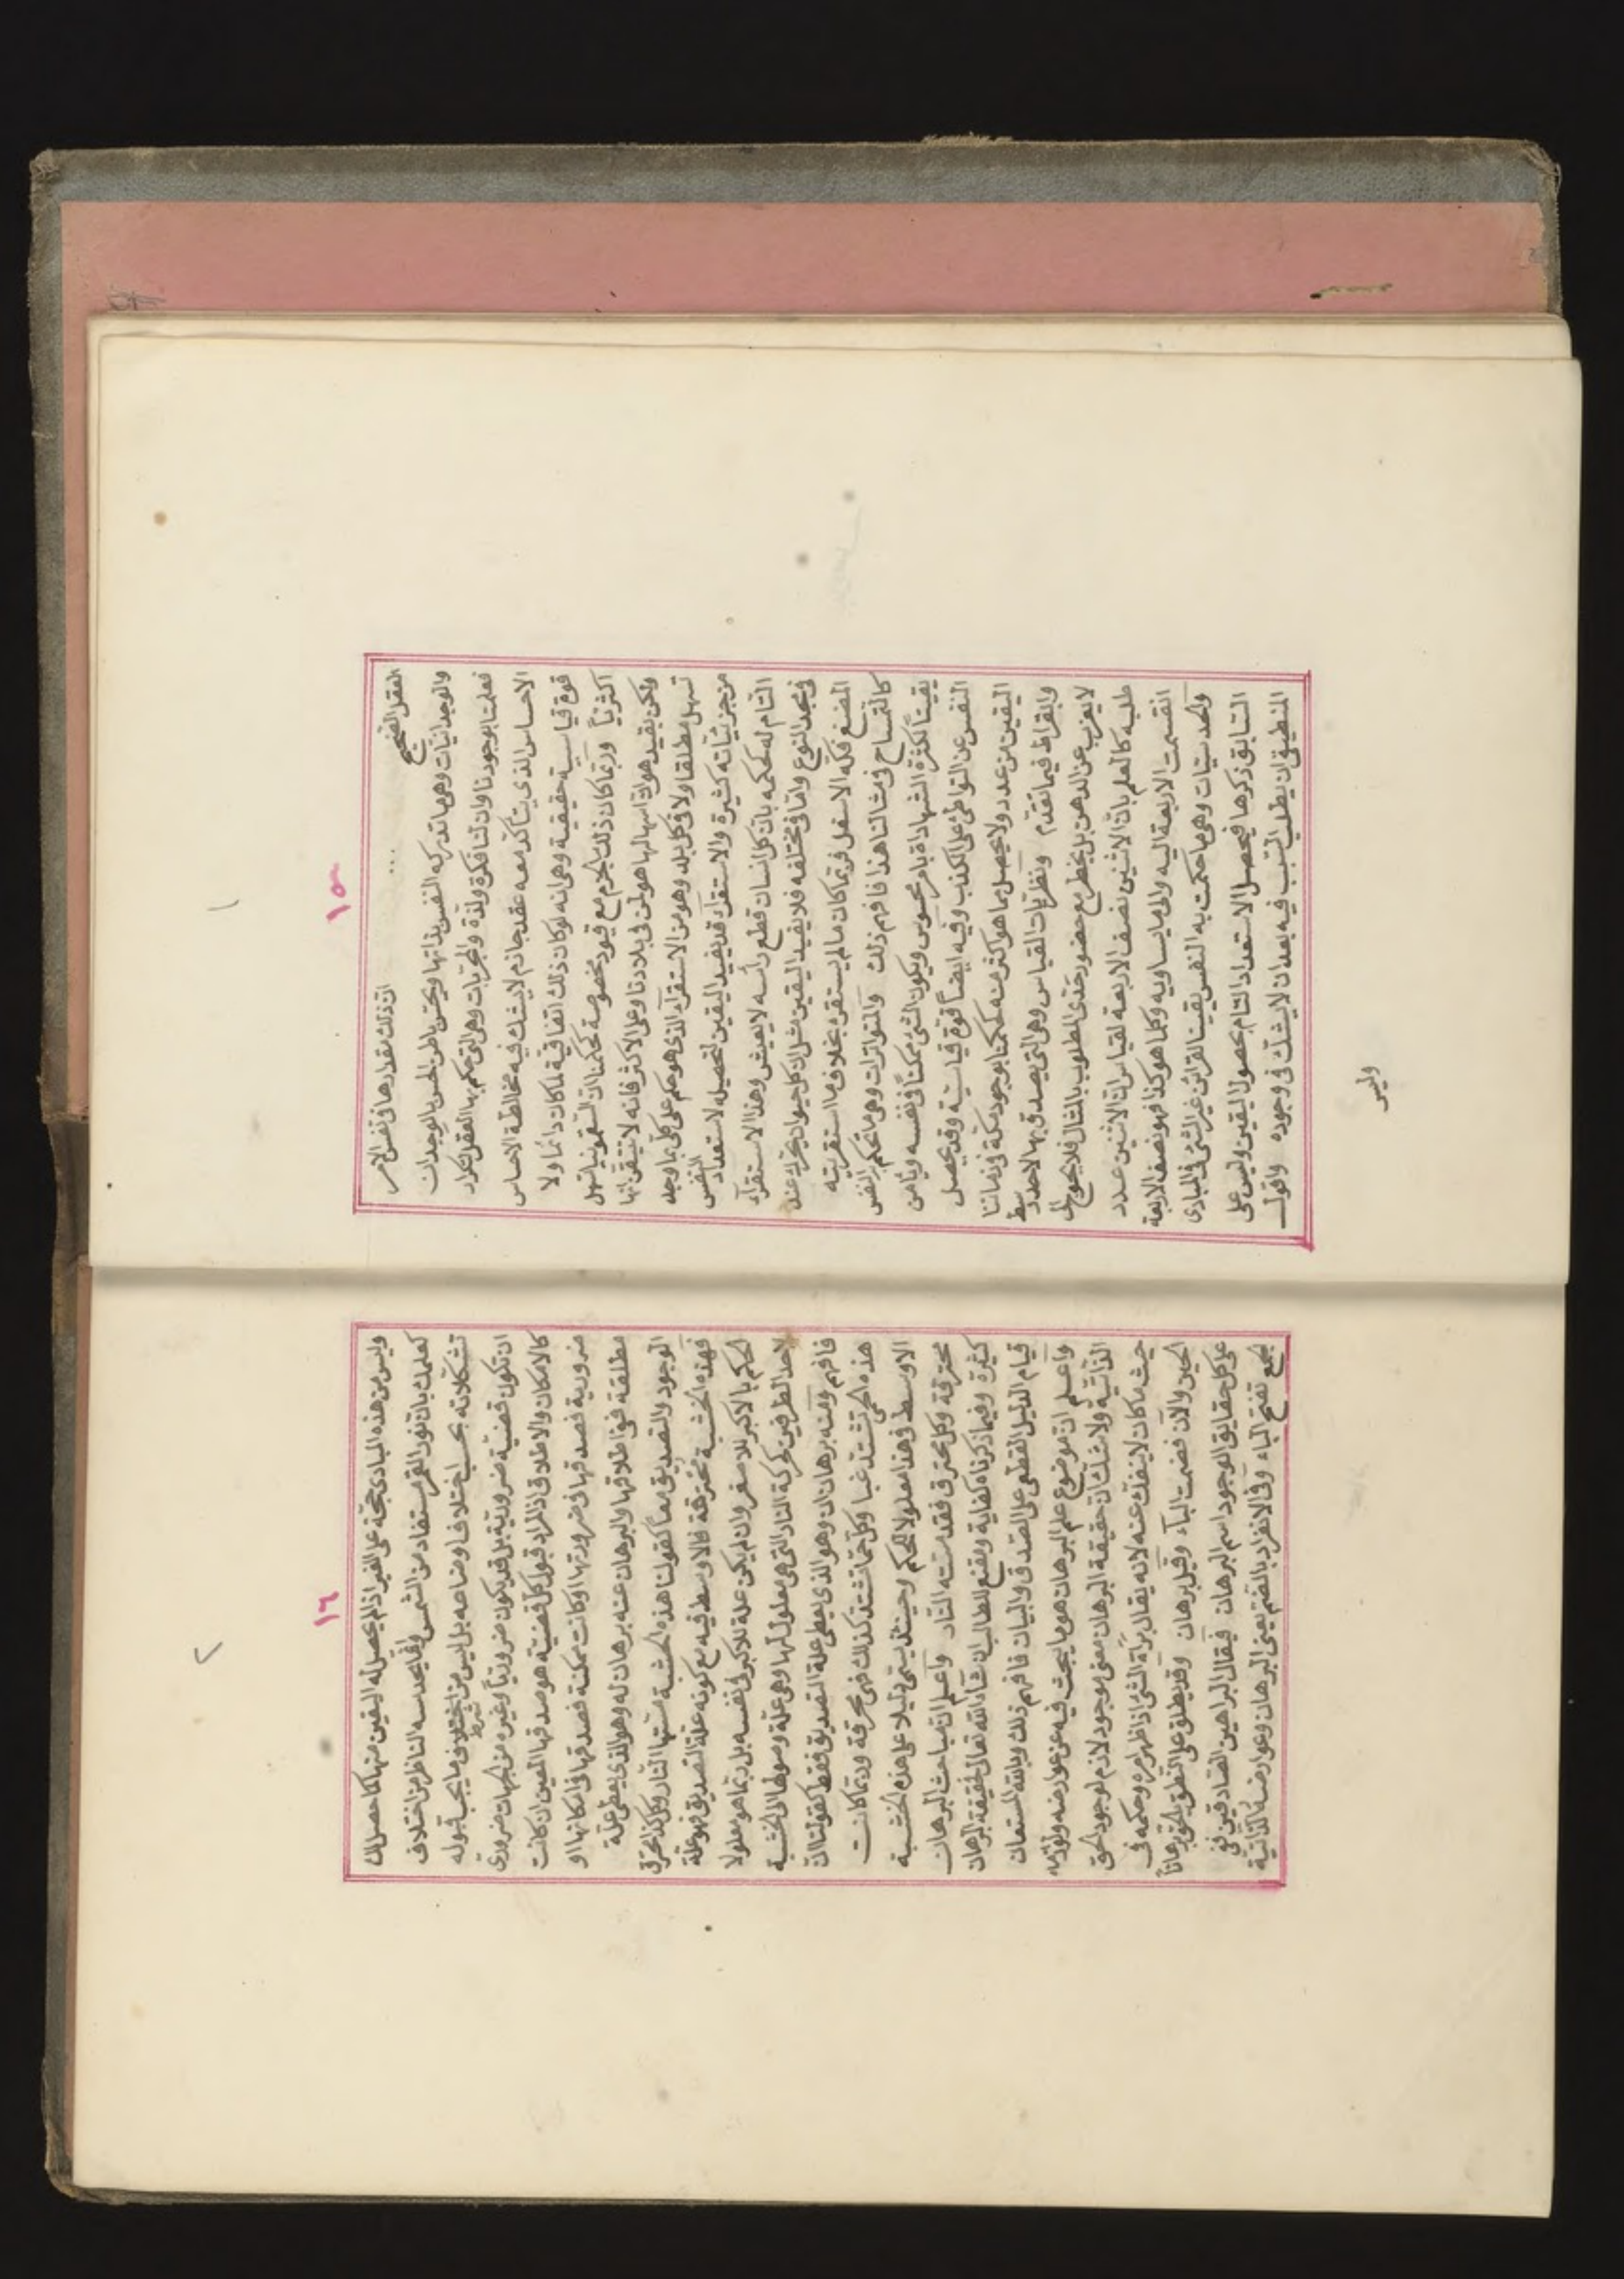 ١
١٥
العقل الصحيح ... ان ذلك بقدارها فى نفس الامر
والوجدانيات وهى ما تدركه النفس بذاتها ويحس باطن الحس بالوجدان
فعلمنا بوجودنا وان لنا فكرة ولذة والمجربات وهى التى يحكم بها العقل لتكرار
الاحساس الذى يتأكد معه عقد جازم لا يشك فيه مخالطة الاحساس
قوة قياسية حقيقية وهى انه لو كان ذلك اتفاقية لما كان دائما ولا
اكثرياً وربما كان ذلك الجزم مع قيود مخصوصة كحكمنا ان السقمونيا تسهل
ولكن بقيد هو ان اسهالها هو لمن فى بلادنا وعلى الاكثر فانه لا تتيقن انها
تسهل مطلقا ولا فى كل بلد وهو من الاستقرآء الذى هو حكم على كلى بما وجد
من جزئياته كثيرة والاستقرآء قد يفيد اليقين لتحصيله لاستعداد النفس
التام له كحكمه بان كل انسان قطع رأسه لا يعيش وهذا الاستقرآء
فى متحد النوع واما فى مختلفه فلا يفيد اليقين مثل ان كل حيوان يحرك عند
المضغ فكه الاسفل فربما كان ما لم يستقرء بخلاف ما استقريته
كالتمساح فى مثالنا هذا فافهم ذلك والمتواترات وهى ما تحكم به النفس
يقيناً لكثرة الشهادة بامر محسوس ويكون الشئ ممكناً فى نفسه ويأمن
النفس عن التواطئ على الكذب وفيه ايضاً قوة قياسية وقد يحصل
اليقين من عدد ولا يحصل بما هو اكثر منه كحكمنا بوجود مكة فى زماننا
وابقراط فيما تقدم ونظريات القياس وهى التى يصدق بها لاحد وسط
لا يعزب عن الذهن بل يخطر مع حضور حدى المطلوب بالمثال فلا يحوج الى
طلبه كالعلم بان الاثنين نصف الاربعة لقياس ان الاثنين عدد
انقسمت الاربعة اليه والى ما يساويه وكلما هو كذا فهو نصف الاربعة
والحدسيات وهى ما حكمت به النفس يقينا لقرائن غير الشئ فى المبادى
السابق ذكرها فيحصل الاستعداد التام بحصول اليقين وليس على
المنطيقى ان يطلب السبب فيه بعد ان لا يشك فى وجوده واقول
وليس
٢
١٦
وليس من هذه المبادى حجة على الغير اذ لم يحصل له اليقين منها كما حصل لك
كعلمك بان نور القمر مستفاد من الشمس وانما يحدسه الناظر من اختلاف
تشكلاته بحسب اختلاف اوضاعه بل ليس من شرط ما يجب قبوله
ان تكون قضية ضرورية بل قد يكون ضروريا وغيره من الجهات ضرورى
كالامكان والاطلاق اذ المراد قبول كل قضية هو صدقها المعين ان كانت
ضرورية فصدقها فى ضرورتها او كانت ممكنة فصدقها فى امكانها او
مطلقة ففى اطلاقها والبرهان عنه برهان له وهو الذى يعطى علة
الوجود والتصديق معاً كقولنا هذه الخشبة مستها النار وكل كذا محترق
فهذه الخشبة محترقة فالاوسط فيه مع كونه علة التصديق فهو علة
الحكم بالاكبر للاصغر وان لم يكن علة للاكبر فى نفسه بل ربما هو معلولا
لاحد الطرفين لحركة النار التى هى معلول لها وهى علة وصولها الى الخشبة
فافهم ومنه برهان ان وهو الذى يعطى علة التصديق فقط كقولنا ان
هذه الحمى تشتد غبا وكل حمّا تشتد كذلك فهى محرقة وربما كانت
الاوسط فى هذا معلولا للحكم وحينئذ يسمى دليلا على هذه الخشبة
محترقة وكل محترق فقد مسته النار واعلم ان مباحث البرهان
كثيرة وفيما ذكرناه كفاية ومقنع للطالب ان شآء الله تعالى لحقيقة البرهان
قيام الدليل القطعى على الصدق والبيان فافهم ذلك وبالله المستعان
واعلم ان موضوع علم البرهان هو ما يبحث فيه عن عوارضه ولوازمه
الذاتية ولا شك ان حقيقة البرهان معنى موجود لازم لوجود الحق
حيث ما كان لا ينفك عنه لانه يقال برآة الشئ اذا ظهر امره وحكمه فى
الحين والآن فضمت البآء وقيل برهان وقد يطلق على النطق بالحق برهاناً
على كل حقايق الوجود اسم البرهان فيقال البراهين الصادقين فى
الجمع تفتح البآء وفى الانفراد بالضم يعنى البرهان وعوارضه الذاتية